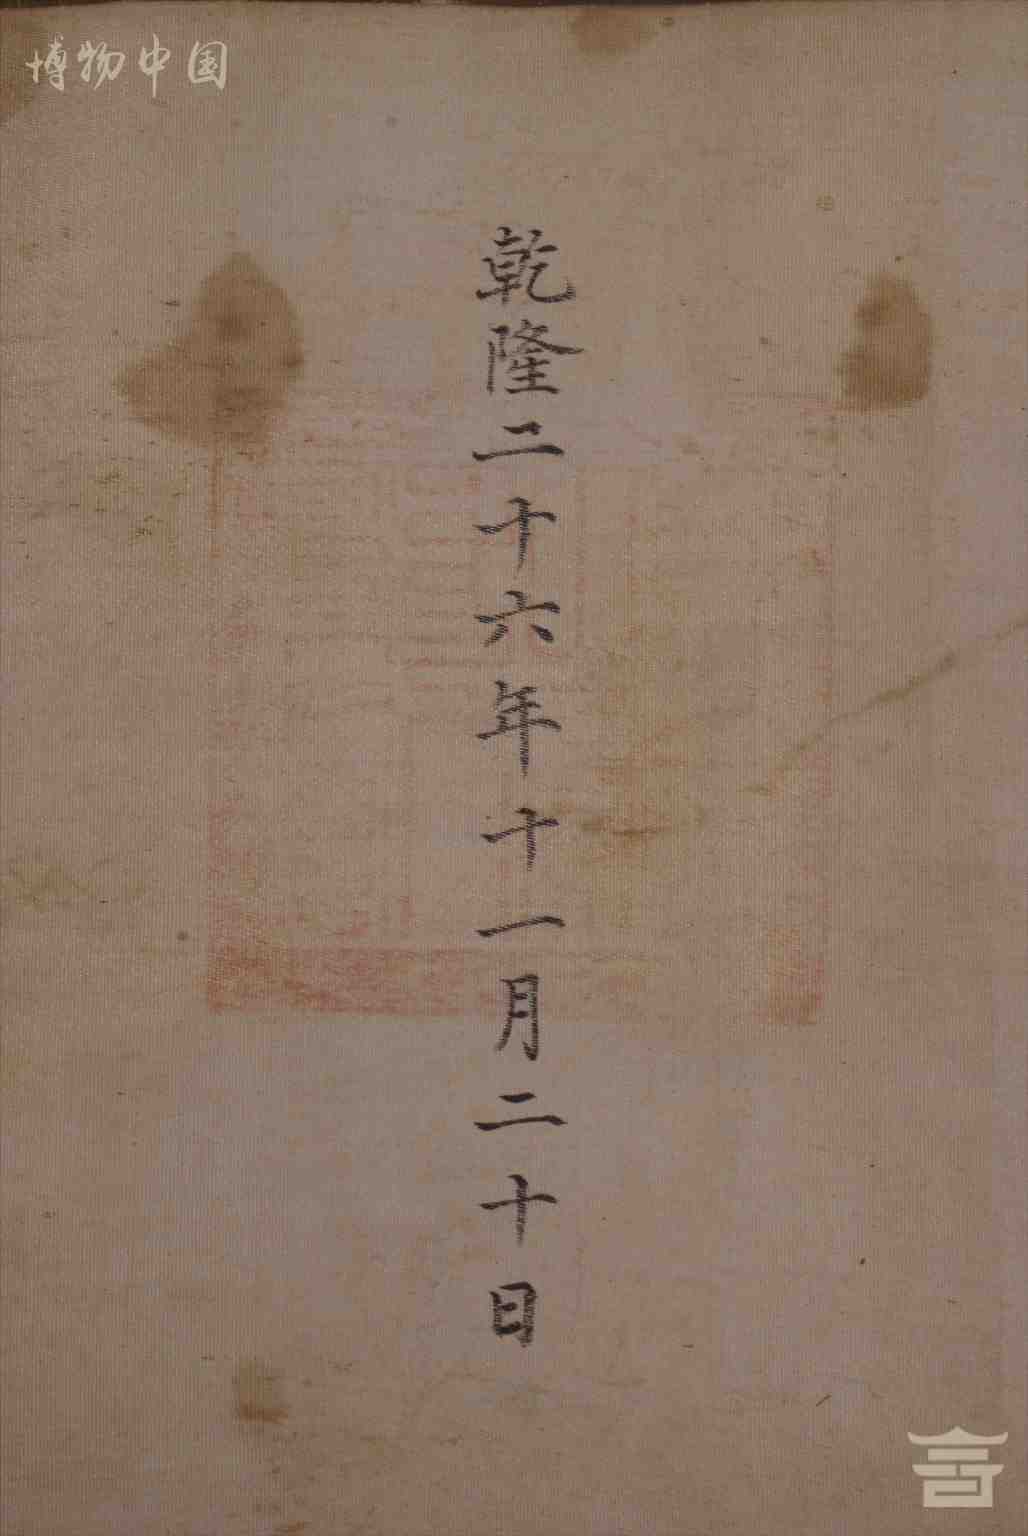 博物中国
乾隆二十六年十一月二十日